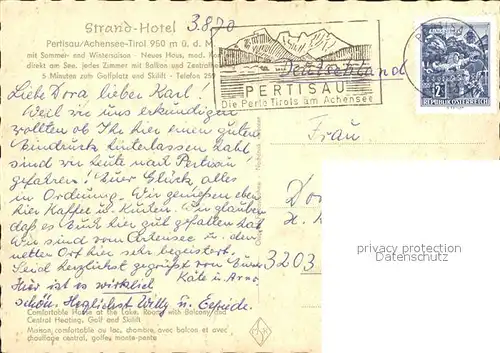 Strand-Hotel
3.8.70
Pertisau/Achensee-Tirol 950 m ü. d. M.
mit Sommer- und Wintersaison - Neues Haus, mod.
direkt am See, jedes Zimmer mit Balkon und
5 Minuten zum Golfplatz und Skilift - Telefon 259
PERTISAU
Die Perle Tirols am Achensee
Deutschland
2
REPUBLIK ÖSTERREICH
Liebe Dora, lieber Karl!
Weil wir uns erkundigen
wollten ob Ihr hier einen guten
Eindruck hinterlassen habt
sind wir heute nach Pertisau
gefahren! Euer Glück, alles
in Ordnung. Wir genießen eben
hier Kaffee u. Kuchen. Wir glauben
daß es Euch hier gut gefallen hat
Wir sind vom Achensee u. den
netten Ort hier sehr begeistert.
Seid herzlichst gegrüßt von
Käte u.
Hier ist es wirklich
schön. Herzlichst Willy u.
Frau
3203
privacy protection
Datenschutz
Comfortable House at the Lake, Rooms with Balcony and
Central Heating, Golf and Skilift
Maison comfortable au lac, chambre avec balcon et avec
chauffage central, golf et monte-pente